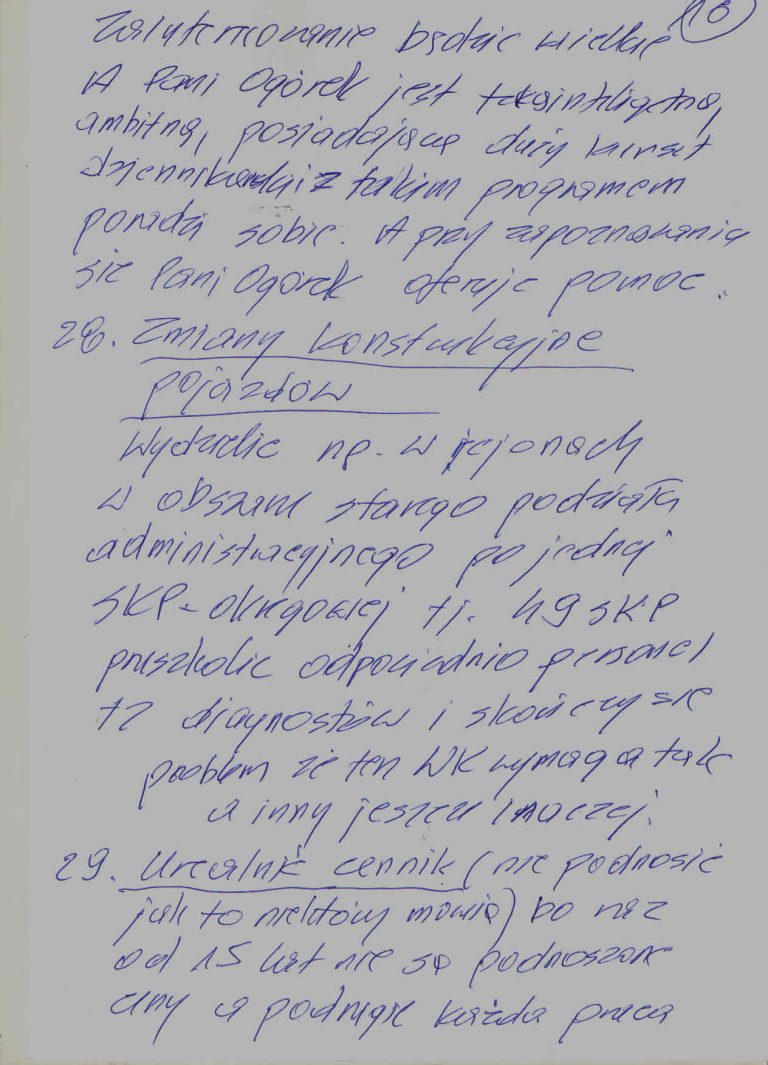 18
Zainteresowanie będzie wielkie
A Pani Ogórek jest taka inteligetną,
ambitną, posiadającą duży
dziennikarski z takim programem
poradzi sobie. A przy zapoznawaniu
się Pani Ogórek oferuje pomoc.
28. Zmiany konstrukcyjne
pojazdów
Wydzielić np. w rejonach
w obszarze starego podziału
administracyjnego po jednej
SKP - okręgowej tj. 49 SKP
przeszkolić odpowiednio personel
tz diagnostów i skończy się
problem że ten WK wymaga tak
a inny jeszcze inaczej.
29. Urealnić cennik (nie podnosić
jak to niektórzy mówią) bo raz
od 15 lat nie są podnoszone
ceny a podrugie każda praca